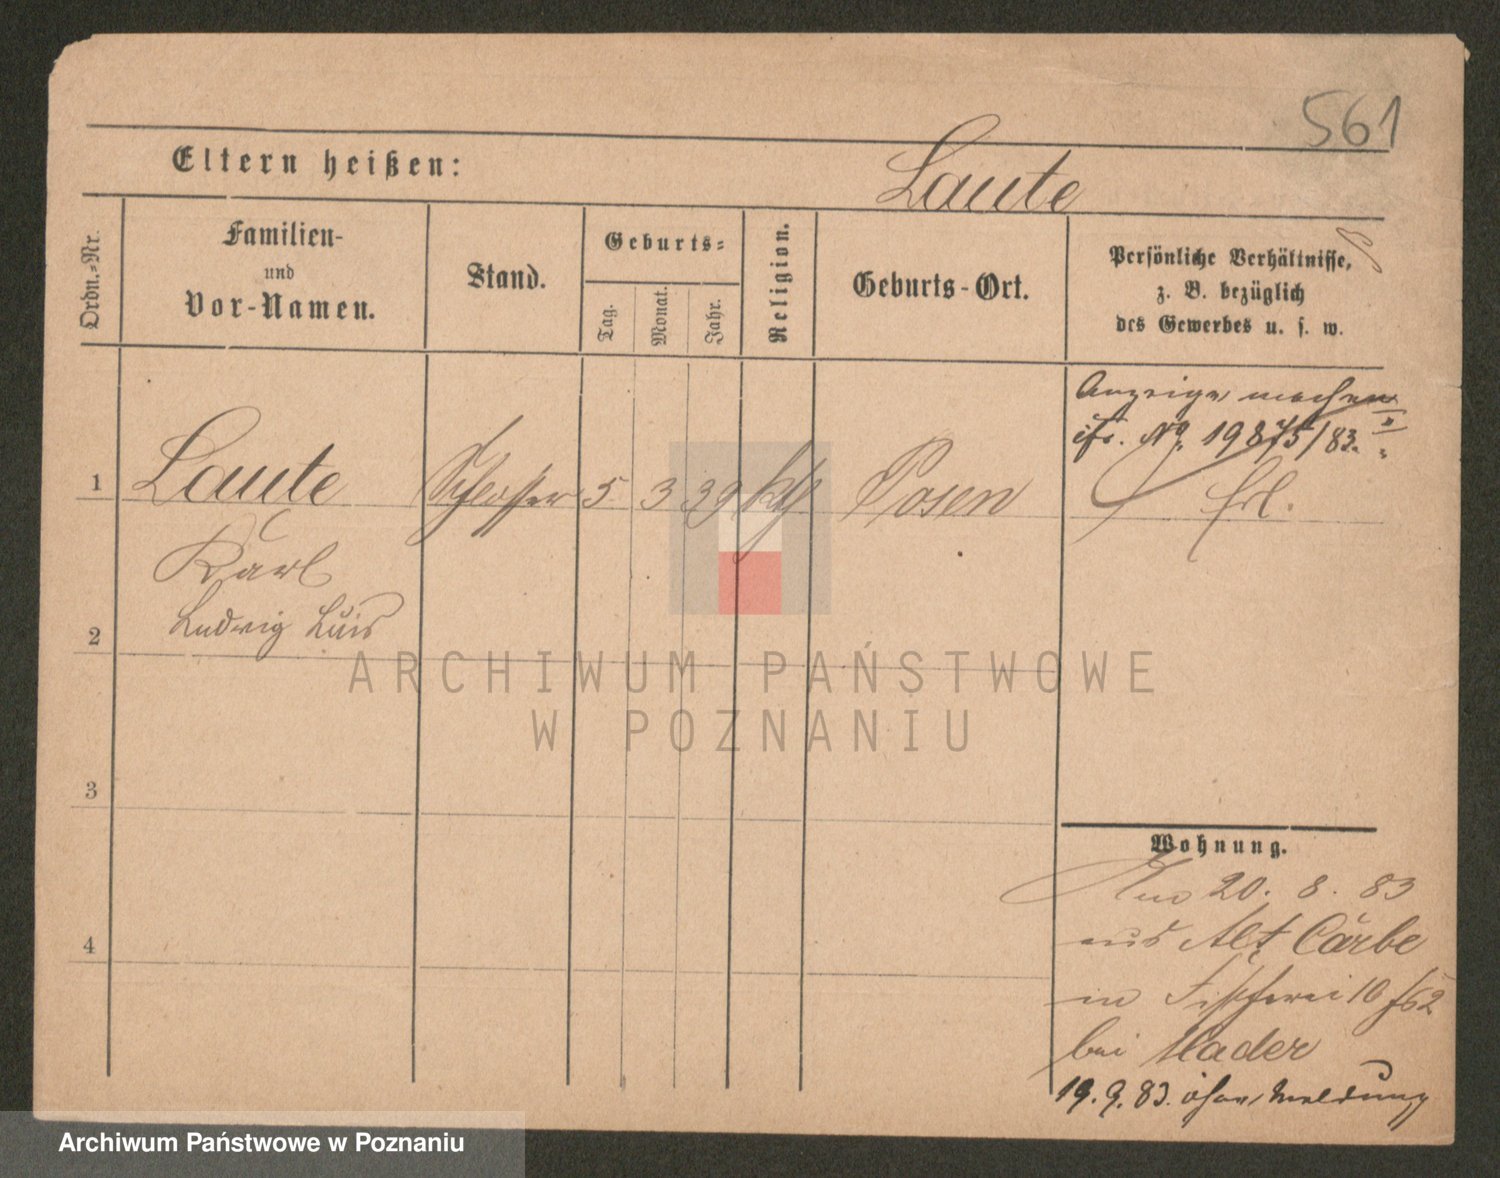 561
Eltern heißen:
Laute
Ordn.=Nr.
Familien-
und
Vor-Namen.
Stand.
Geburts=
Tag.
Monat.
Jahr.
Religion.
Geburts-Ort.
Persönliche Verhältnisse,
z. B. bezüglich
des Gewerbes u. s. w.
Anzeige machen
No. 19875/83.
Erl.
1
Laute
Schlosser
5
3
39
kth
Posen
Karl
Ludwig Luis
2
3
4
Wohnung.
Am 20. 8. 83
aus Alt Cärbe
in Fischerei 10
bei Mader
19. 9. 83. ohne Meldung
ARCHIWUM PAŃSTWOWE
W POZNANIU
Archiwum Państwowe w Poznaniu